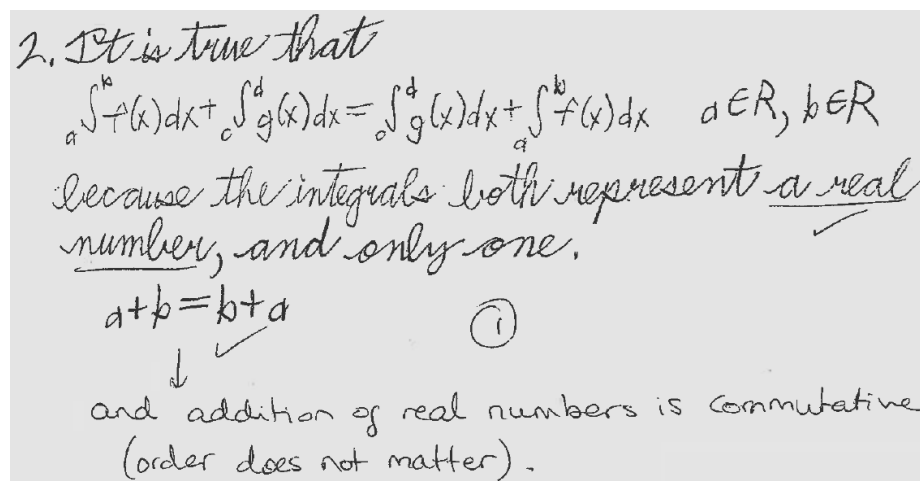 2. It is true that
a∫ᵇ f(x)dx + c∫ᵈ g(x)dx = c∫ᵈ g(x)dx + a∫ᵇ f(x)dx a∈R, b∈R
because the integrals both represent a real
number, and only one.
a+b=b+a
1
and addition of real numbers is commutative
(order does not matter).